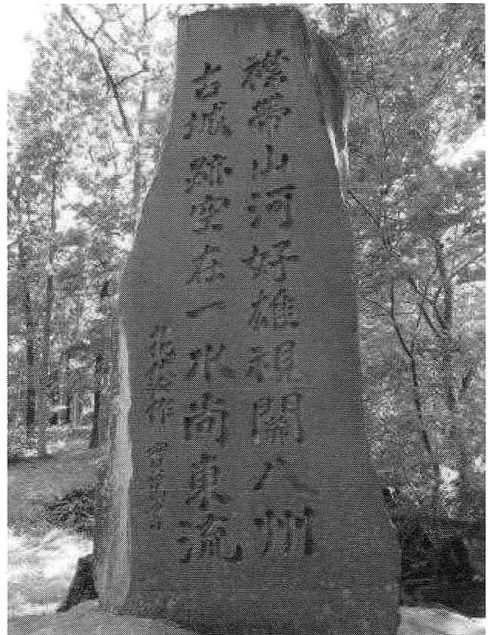 襟帯山河好雄視關八州
古城跡空在一水尚東流
花袋作